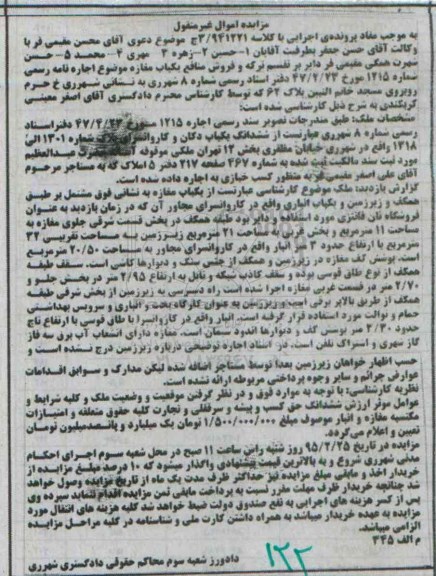 مزایده اموال غیرمنقول
به موجب مفاد پرونده‌ی اجرایی با کلاسه ۹۴۱۲۲۱/۳ج موضوع دعوی آقای محسن مقیمی فر با
وکالت آقای حسن جعفر بطرفیت آقایان ۱- حسین ۲-زهره ۳- مهری ۴- محمد ۵- حسن
شهرت همگی مقیمی فر دایر بر تقسیم ترکه و فروش منافع یکباب مغازه موضوع اجاره نامه رسمی
شماره ۱۲۱۵ مورخ ۴۷/۲/۲۳ دفتر اسناد رسمی شماره ۸ شهرری به نشانی شهرری خ حرم
روبروی مسجد خاتم النبین پلاک ۶۲ که توسط کارشناس محترم دادگستری آقای اصغر معینی
کربکندی به شرح ذیل کارشناسی شده است:
مشخصات ملک: طبق مندرجات تصویر سند رسمی اجاره ۱۲۱۵ مورخ ۴۷/۲/۲۳ دفتر اسناد
رسمی شماره ۸ شهرری عبارتست از ششدانگ یکباب دکان و کاروانسرای پلاک شماره ۱۳۰۱ الی
۱۳۱۸ واقع در شهرری خیابان مظفری بخش ۱۲ تهران ملکی موقوفه عبدالعظیم
مورد ثبت سند مالکیت ثبت شده به شماره ۴۶۷ صفحه ۲۱۷ دفتر ۵ املاک که به مستاجر مرحوم
آقای علی اصغر مقیمی فر به منظور کسب خبازی به اجاره داده شده است.
گزارش بازدید: ملک موضوع کارشناسی عبارتست از یکباب مغازه به نشانی فوق مشتمل بر طبق
همکف و زیرزمین و یکباب انباری واقع در کاروانسرای مجاور آن که در زمان بازدید به عنوان
فروشگاه نان فانتزی مورد استفاده و دایر بود طبقه همکف در بخش قسمت شرقی جلوی مغازه به
مساحت ۱۱ مترمربع و بخش غربی به مساحت ۲۱ مترمربع زیرزمین به مساحت تقریبی ۳۲
مترمربع با ارتفاع حدود ۳ متر انبار واقع در کاروانسرای مجاور به مساحت ۲۰/۵۰ مترمربع
است. پوشش کف مغازه در زیرزمین و همکف از جنس سنگ و دیوارها کاشی است. سقف طبقه
همکف از نوع طاق قوسی بوده و سقف کاذب شبکه و نایل به ارتفاع ۲/۹۵ متر در بخش جلو و
۲/۷۰ متر در قسمت غربی مغازه اجرا شده است راه دسترسی به زیرزمین از بخش شرقی طبقه
همکف از طریق بالابر برقی است و زیرزمین به عنوان کارگاه پخت و انباری و سرویس بهداشتی
حمام و توالت مورد استفاده قرار گرفته است. انبار واقع در کاروانسرا با طاق قوسی با ارتفاع تاج
حدود ۳/۳۰ متر پوشش کف و دیوارها اندود سیمان است. مغازه دارای انشعاب آب برق سه فاز
گاز شهری و اشتراک تلفن است. در اسناد اجاره توضیحی درباره زیرزمین درج نشده است و
حسب اظهار خواهان زیرزمین بعدا توسط مستاجر اضافه شده لیکن مدارک و سوابق اقدامات
عوارض جرائم و سایر وجوه پرداختی مربوطه ارائه نشده است.
نظریه کارشناسی: با توجه به موارد فوق و در نظر گرفتن موقعیت و وضعیت ملک و کلیه شرایط و
عوامل موثر ارزش ششدانگ حق کسب و پیشه و سرقفلی و تجارت کلیه حقوق متعلقه و امتیازات
مکتسبه مغازه و انبار موصوف مبلغ ۱/۵۰۰/۰۰۰/۰۰۰ تومان یک میلیارد و پانصدمیلیون تومان
تعیین و اعلام می‌گردد.
مزایده در تاریخ ۹۵/۲/۲۵ روز شنبه راس ساعت ۱۱ صبح در محل شعبه سوم اجرای احکام
مدنی شهرری شروع و به بالاترین قیمت پیشنهادی واگذار میشود که ۱۰ درصد مبلغ مزایده از
خریدار اخذ و مابقی مبلغ مزایده نیز حداکثر ظرف مدت یک ماه از تاریخ مزایده وصول خواهد
شد چنانچه خریدار ظرف مهلت مقرر نسبت به پرداخت مابقی ثمن مزایده اقدام ننماید سپرده وی
پس از کسر هزینه های اجرایی به نفع صندوق دولت ضبط خواهد شد کلیه هزینه های انتقال مورد
مزایده به عهده خریدار میباشد به همراه داشتن کارت ملی و شناسنامه در کلیه مراحل مزایده
الزامی میباشد.
م الف ۳۴۵
دادورز شعبه سوم محاکم حقوقی دادگستری شهرری
۱۲۲